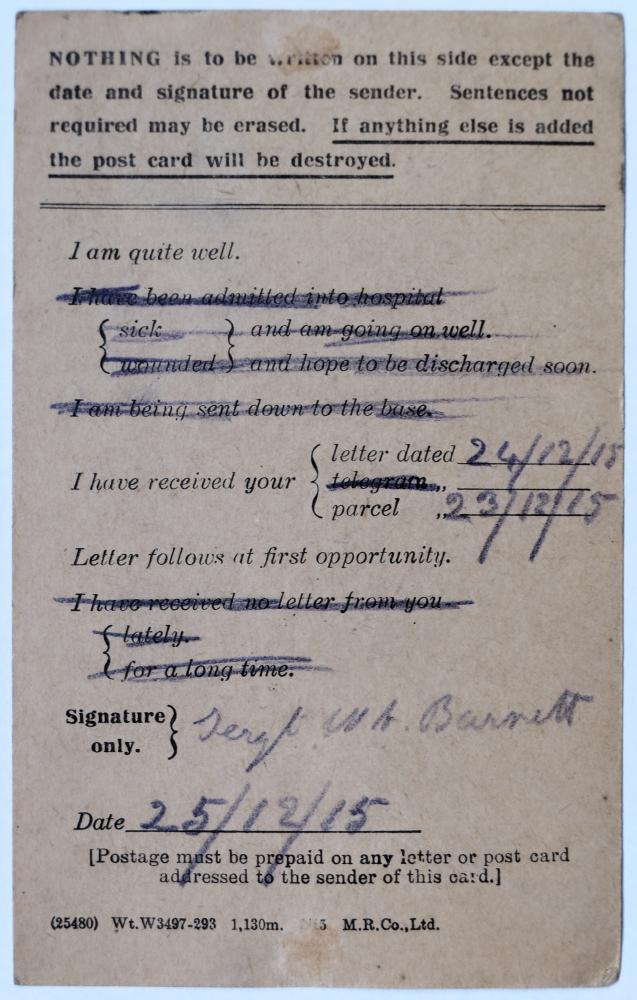 NOTHING is to be written on this side except the
date and signature of the sender. Sentences not
required may be erased. If anything else is added
the post card will be destroyed.
I am quite well.
I have been admitted into hospital
{ sick } and am going on well.
{ wounded } and hope to be discharged soon.
I am being sent down to the base.
letter dated 24/12/15
I have received your { telegram „
parcel „ 23/12/15
Letter follows at first opportunity.
I have received no letter from you
{ lately.
for a long time.
Signature
only. } Sergt Barnett
Date 25/12/15
[Postage must be prepaid on any letter or post card
addressed to the sender of this card.]
(25480) Wt.W3497-293 1,130m. M.R.Co.,Ltd.